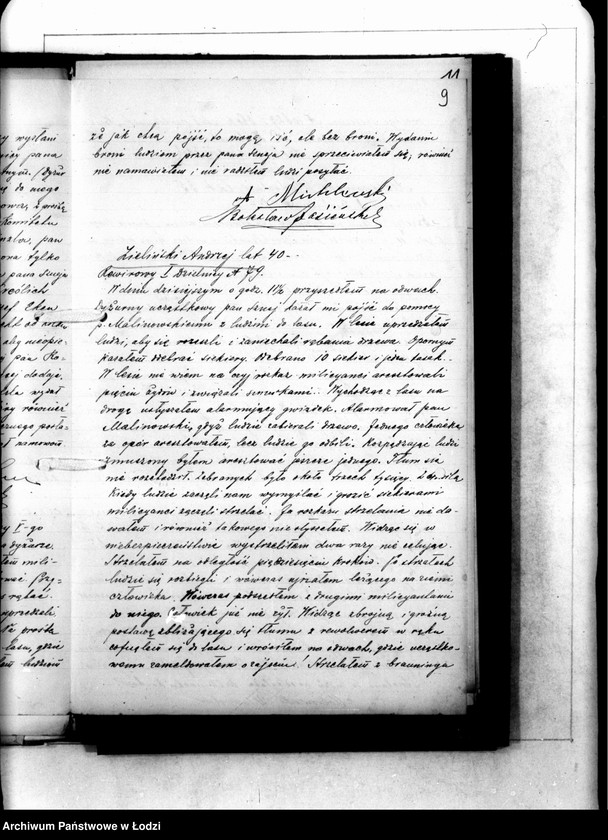 11
9
że jak chcą pójść, to mogą iść, ale bez broni. Wydaniu
broni ludziom przez pana Szneja nie sprzeciwiałem się, również
nie namawiałem i nie radziłem ludzi posyłać.
Zieliński Andrzej lat 40 -
Rewirowy I Dzielnicy № 79.
W dniu dzisiejszym o godz. 11½ przyszedłem na odwach.
Dyżurny uczęstkowy pan Sznej kazał mi pójść do pomocy
p. Malinowskiemu z ludźmi do lasu. W lesie uprzedzałem
ludzi, aby się rozeszli i zaniechali rąbania drzewa. Opornym
kazałem odebrać siekiery. Odebrano 10 siekier i jeden tasak.
W lesie nie wiem na czyj rozkaz milicyanci aresztowali
pięciu żydów i związali sznurkami. Wychodząc z lasu na
drogę usłyszałem alarmujący gwizdek. Alarmował pan
Malinowski, gdyż ludzie zabierali drzewo. Jednego człowieka
za opór aresztowałem, lecz ludzie go odbili. Rozpędzając ludzi
zmuszony byłem aresztować jeszcze jednego. Tłum się
nie rozchodził. Zebranych było około trzech tysięcy.
Kiedy ludzie zaczęli nam wymyślać i grozić siekierami
milicyanci zaczęli strzelać. Ja rozkazu strzelania nie da-
wałem i również takowego nie słyszałem. Widząc się w
niebezpieczeństwie wystrzeliłem dwa razy nie celując.
Strzelałem na odległość pięćdziesięciu kroków. Po strzałach
ludzie się rozbiegli i wówczas ujrzałem leżącego na ziemi
człowieka. Wówczas podszedłem z drugimi milicyantami
do niego. Człowiek już nie żył. Widząc zbrojną i groźną
postawę zbliżającego się tłumu z rewolwerem w ręku
cofnąłem się do lasu i wróciłem na odwach, gdzie uczęstko-
wemu zameldowałem o zajściu. Strzelałem z brauninga
Archiwum Państwowe w Łodzi